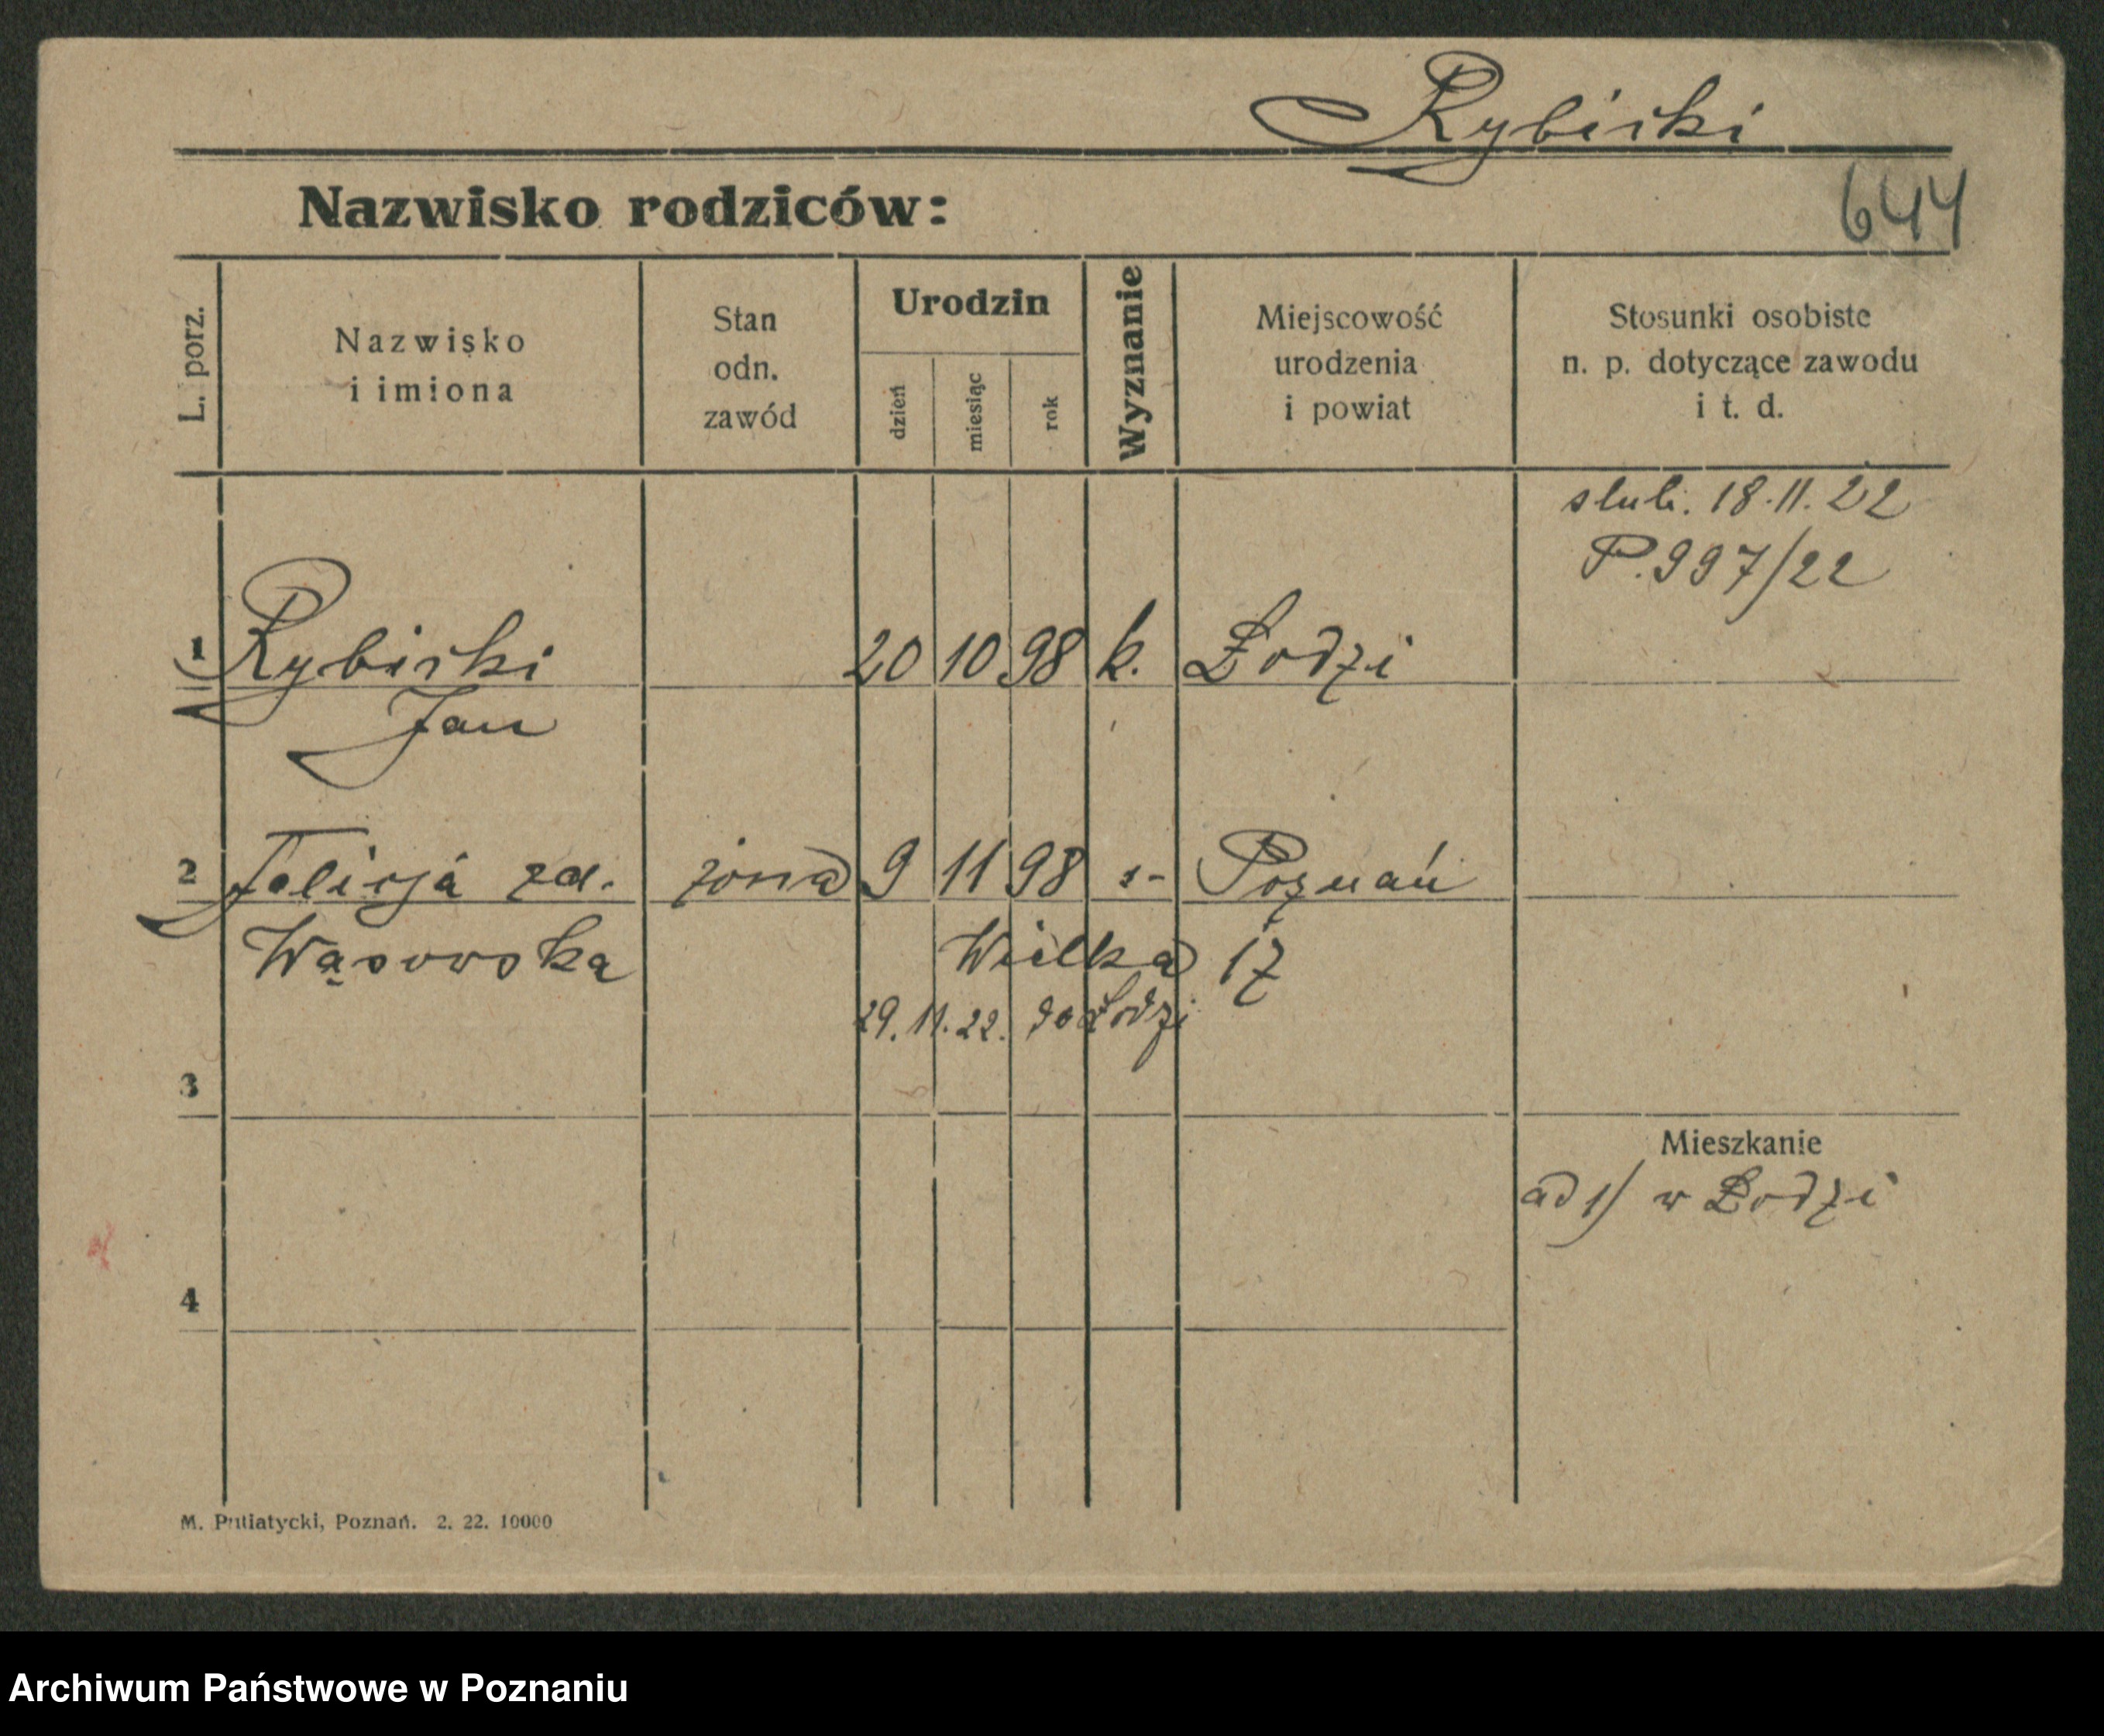 Rybicki
Nazwisko rodziców:
644
L. porz.
Nazwisko
i imiona
Stan
odn.
zawód
Urodzin
dzień
miesiąc
rok
Wyznanie
Miejscowość
urodzenia
i powiat
Stosunki osobiste
n. p. dotyczące zawodu
i t. d.
slub. 18.11.22
P. 997/22
1 Rybicki 20 10 98 k. Łodzi
Jan
2 Felicja zd. żona 9 11 98 Poznań
Wąsowska Wielka 17
29.11.22. do Łodzi
3
Mieszkanie
ad 1/ w Łodzi
4
M. Putiatycki, Poznań. 2. 22. 10000
Archiwum Państwowe w Poznaniu